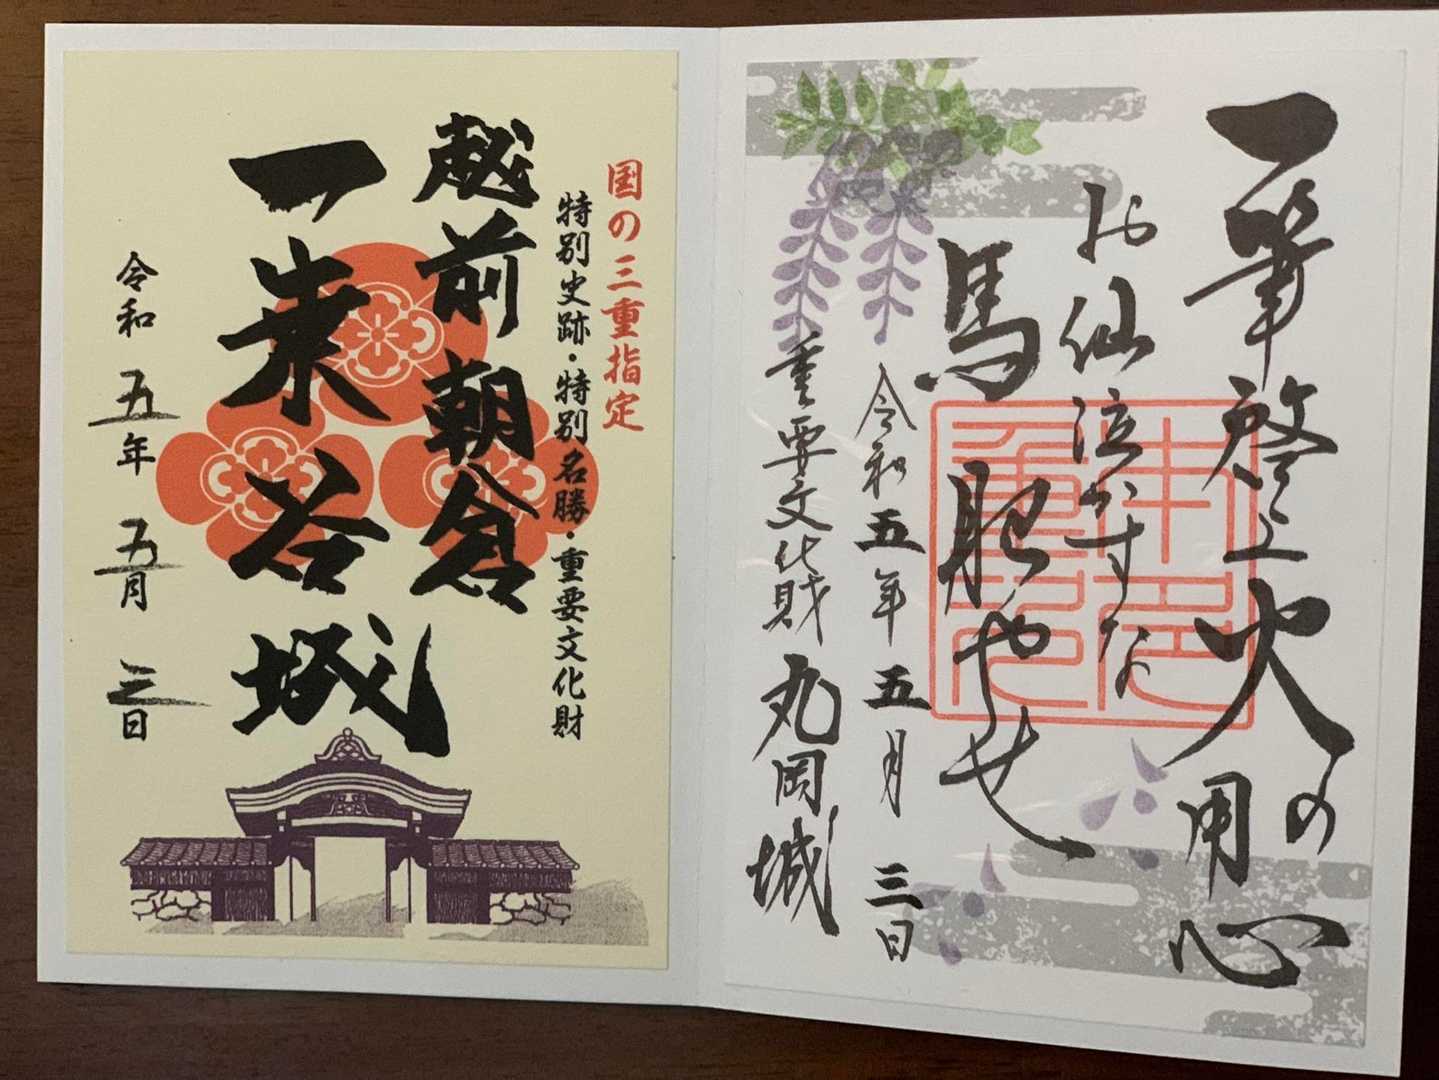 一筆啓上火の用心
お仙泣かすな
馬肥やせ
令和五年五月三日
重要文化財 丸岡城
国の三重指定
特別史跡・特別名勝・重要文化財
越前朝倉
一乗谷城
令和五年五月三日